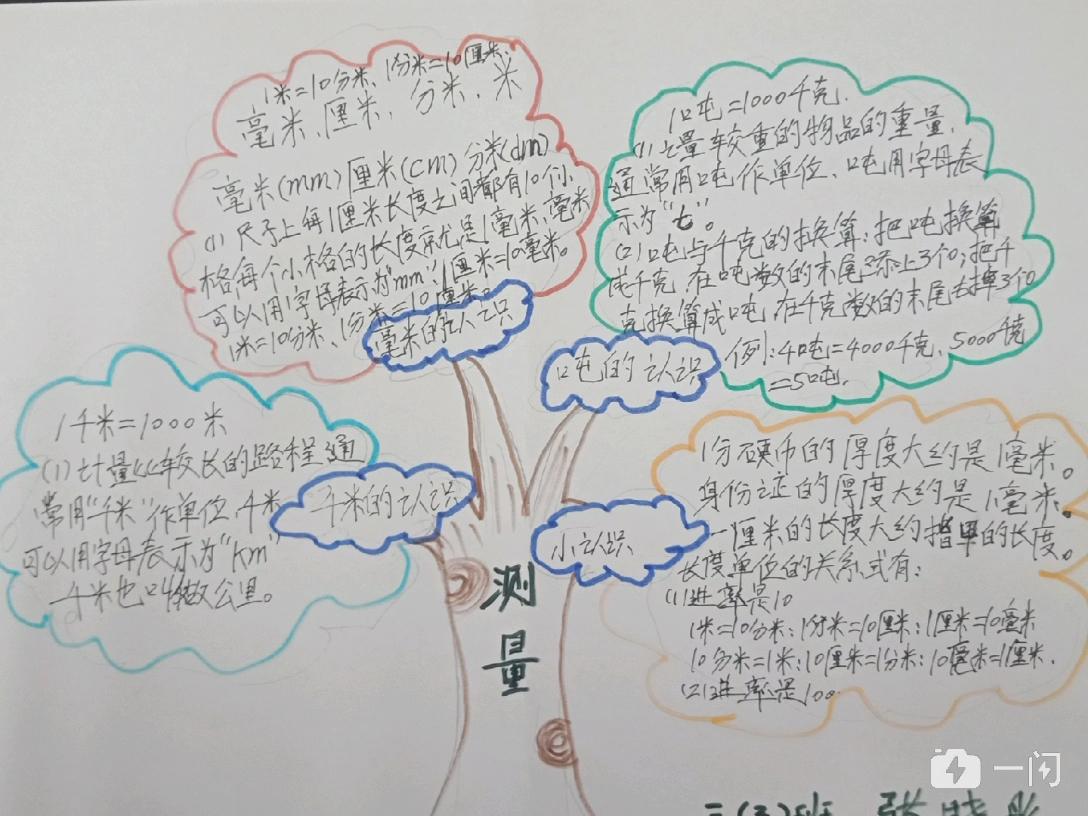 1米=10分米、1分米=10厘米、
毫米、厘米、分米、米
毫米(mm)厘米(cm)分米(dm)
(1)尺子上每1厘米长度之间都有10个小
格每个小格的长度就是1毫米、毫米
可以用字母表示为"mm";1厘米=10毫米。
1米=10分米、1分米=10厘米。
毫米的认识
1吨=1000千克.
(1)计量较重的物品的重量,
通常用吨作单位、吨用字母表
示为"t"。
(2)吨与千克的换算:把吨换算
成千克,在吨数的末尾添上3个0;把千
克换算成吨,在千克数的末尾去掉3个0
例:4吨=4000千克,5000千克
=5吨.
吨的认识
1千米=1000米
(1)计量比较长的路程通
常用"千米"作单位,千米
可以用字母表示为"km"
千米也叫做公里。
千米的认识
小认识
1分硬币的厚度大约是1毫米。
身份证的厚度大约是1毫米。
一厘米的长度大约指甲的长度。
长度单位的关系式有:
(1)进率是10
1米=10分米;1分米=10厘米;1厘米=10毫米
10分米=1米;10厘米=1分米;10毫米=1厘米.
(2)进率是100.
测
量
三(3)班 张晓
一闪